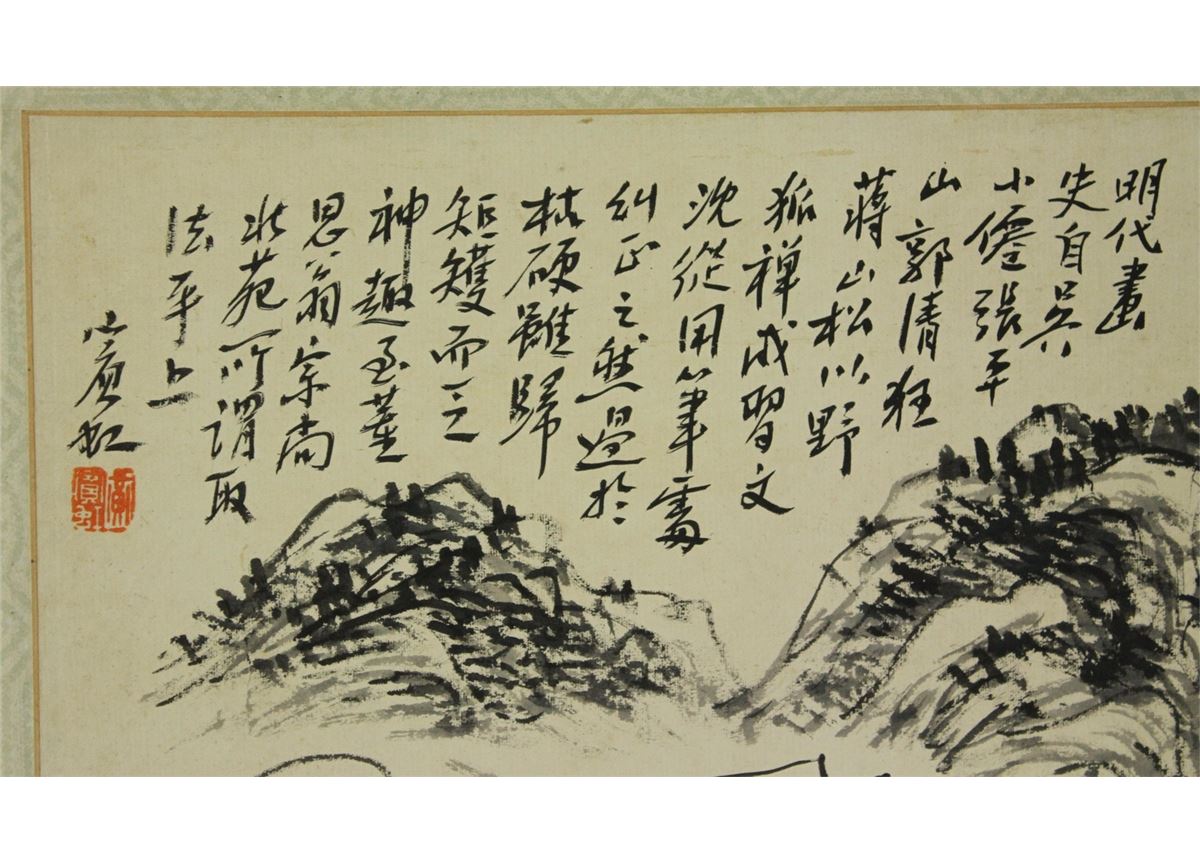 明代畫
史自吳
小僊張平
山郭清狂
蔣山松以野
狐禪成習文
沈從用筆處
糾正之然過於
枯硬雖歸
矩矱而乏
神趣至董
思翁宗尚
北苑所謂取
法乎上
賓虹
黃賓虹